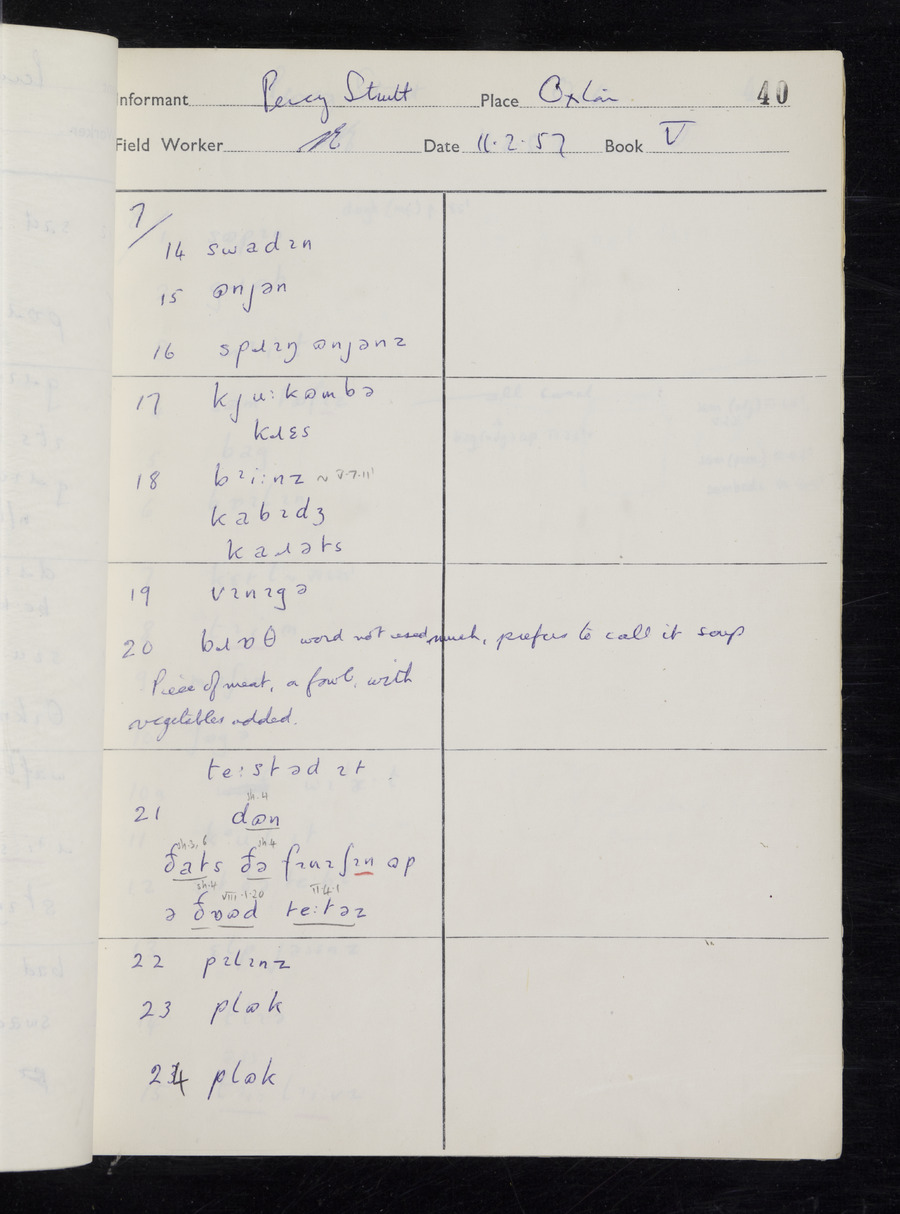 Informant Percy Strutt Place Oxlin 40
Field Worker Date 11.2.57 Book V
7/
14 swadɪn
15 ɷnjən
16 spɹɪŋ ɷnjənz
17 kjuːkɷmbə
kɹɛs
18 bɪiːnz ~ V.7.11
kabɪdʒ
kaɹəts
19 vɪnɪgə
20 bɹɒθ word not used much, prefers to call it soup
Piece of meat, a fowl, with
vegetables added.
teːstəd ɪt
sh.4
21 dɷn
sh.3,6 sh.4
ðats ðə fɪnɪʃɪn ɷp
sh.4 VIII.1.20 VI.4.1
ə teːtəz
22 pɪlɪnz
23 plɷk
24 plɷk